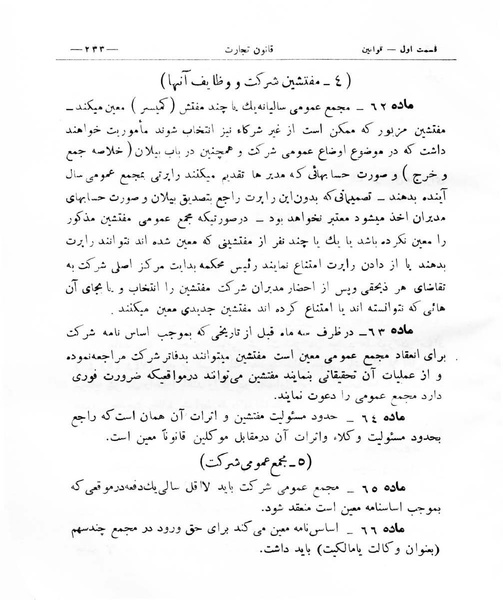 قسمت اول — قوانین    قانون تجارت    —۲۳۳—
( ٤ ـ مفتشین شرکت و وظایف آنها )
ماده ٦٢ ـ مجمع عمومی سالیانه یك یا چند مفتش ( کمیسر ) معین میکند ـ
مفتشین مزبور که ممکن است از غیر شرکاء نیز انتخاب شوند مأموریت خواهند
داشت که در موضوع اوضاع عمومی شرکت و همچنین در باب بیلان ( خلاصه جمع
و خرج ) و صورت حسابهائی که مدیرها تقدیم میکنند راپرتی بمجمع عمومی سال
آینده بدهند ـ تصمیماتی که بدون این راپرت راجع بتصدیق بیلان و صورت حسابهای
مدیران اخذ میشود معتبر نخواهد بود ـ درصورتیکه مجمع عمومی مفتشین مذکور
را معین نکرده باشد یا یك یا چند نفر از مفتشینی که معین شده اند نتوانند راپرت
بدهند یا از دادن راپرت امتناع نمایند رئیس محکمه بدایت مرکز اصلی شرکت به
تقاضای هر ذیحقی وپس از احضار مدیران شرکت مفتشین را انتخاب و یا بجای آن
هائی که نتوانسته اند یا امتناع کرده اند مفتشین جدیدی معین میکنند .
ماده ٦٣ ـ درظرف سه ماه قبل از تاریخی که بموجب اساس نامه شرکت
برای انعقاد مجمع عمومی معین است مفتشین میتوانند بدفاتر شرکت مراجعه نموده
و از عملیات آن تحقیقاتی بنمایند مفتشین می توانند درمواقعیکه ضرورت فوری
دارد مجمع عمومی را دعوت نمایند .
ماده ٦٤ ـ حدود مسئولیت مفتشین و اثرات آن همان است که راجع
بحدود مسئولیت وکلاء واثرات آن درمقابل موکلین قانوناً معین است .
( ٥ ـ مجمع عمومی شرکت )
ماده ٦٥ ـ مجمع عمومی شرکت باید لااقل سالی یك دفعه در موقعی که
بموجب اساسنامه معین است منعقد شود .
ماده ٦٦ ـ اساس نامه معین می کند برای حق ورود در مجمع چندسهم
( بعنوان وکالت یا مالکیت ) باید داشت .